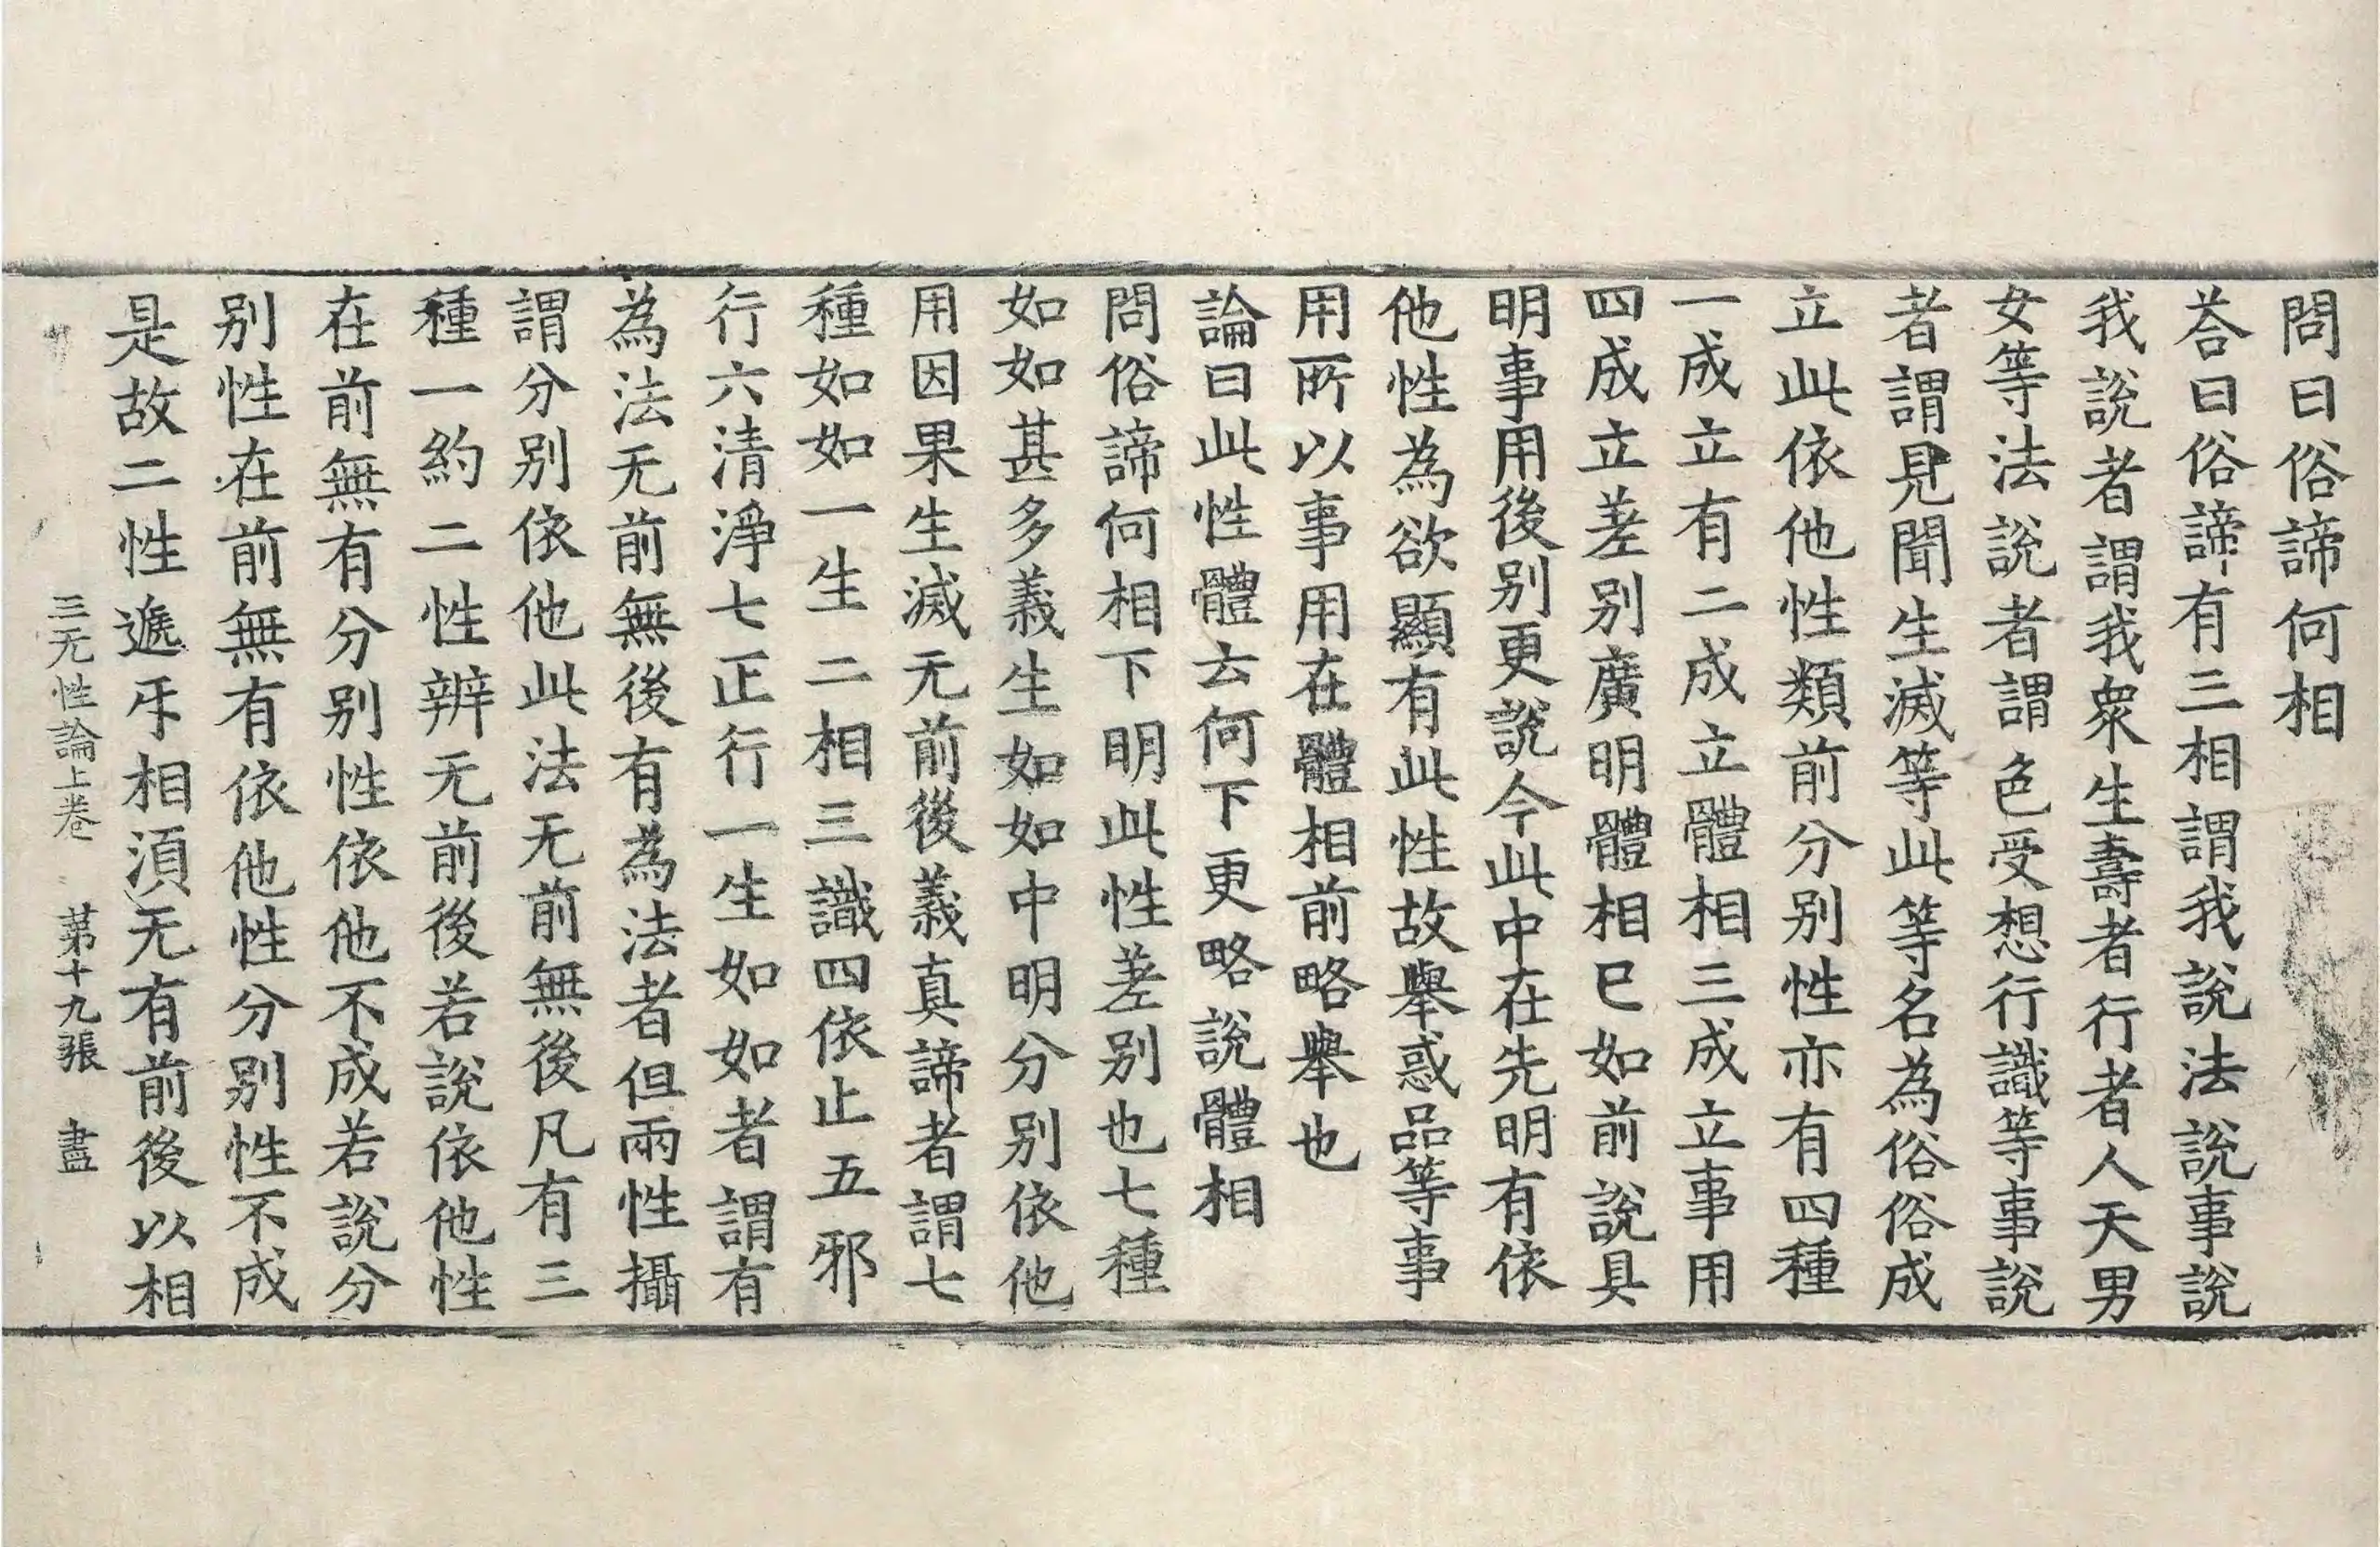 問曰俗諦何相
荅曰俗諦有三相謂我說法說事說
我說者謂我衆生壽者行者人天男
女等法說者謂色受想行識等事說
者謂見聞生滅等此等名為俗俗成
立此依他性類前分别性亦有四種
一成立有二成立體相三成立事用
四成立差别廣明體相已如前說具
明事用後别更說今此中在先明有依
他性為欲顯有此性故舉惑品等事
用所以事用在體相前略舉也
論曰此性體云何下更略說體相
問俗諦何相下明此性差别也七種
如如甚多義生如如中明分别依他
用因果生滅无前後義真諦者謂七
種如如一生二相三識四依止五邪
行六清淨七正行一生如如者謂有
為法无前無後有為法者但兩性攝
謂分别依他此法无前無後凡有三
種一約二性辨无前後若說依他性
在前無有分别性依他不成若說分
别性在前無有依他性分别性不成
是故二性遞㸦相湏无有前後以相
三无性論上卷 苐十九張 盡